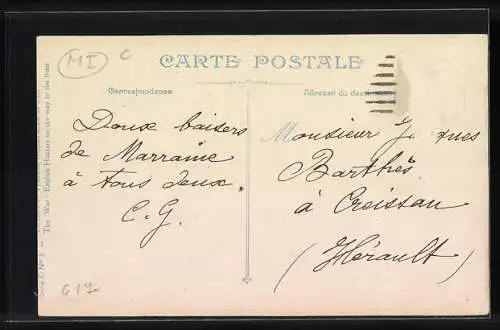 MI
C
CARTE POSTALE
Correspondance
Adresse du
Doux baisers
de Marraine
à tous deux.
C. G.
Monsieur Jques
Barthès
à Creissan
(Hérault)
The War - English Hussars on the way to the front
617